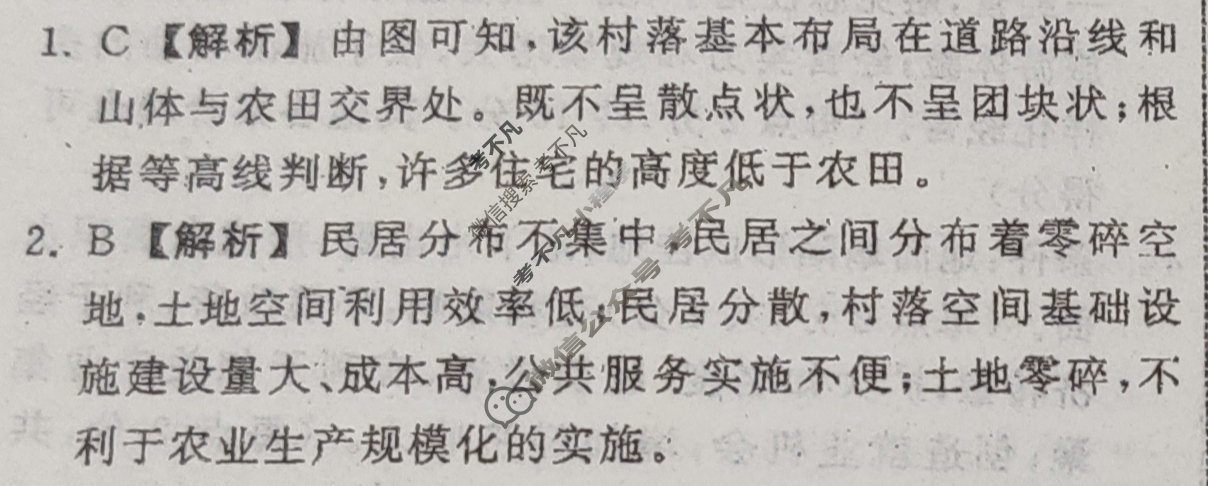 1. C【解析】由图可知,该村落基本布局在道路沿线和
山体与农田交界处。既不呈散点状,也不呈团块状;根
据等高线判断,许多住宅的高度低于农田。
2. B【解析】民居分布不集中,民居之间分布着零碎空
地,土地空间利用效率低;民居分散,村落空间基础设
施建设量大、成本高,公共服务实施不便;土地零碎,不
利于农业生产规模化的实施。
考不凡
微信搜索考不凡
考不凡小程序
微信公众号 考不凡